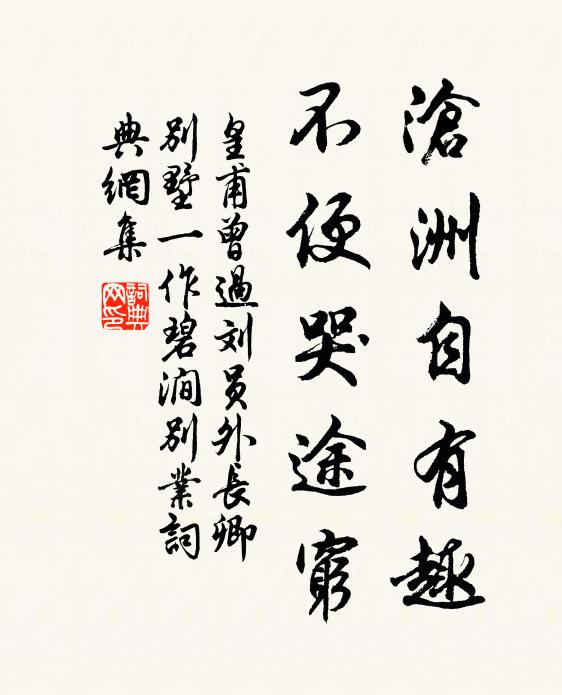 滄洲自有趣
不便哭途窮
皇甫曾過刘员外長卿
别墅一作碧澗别業詞
典網集
詞典网印